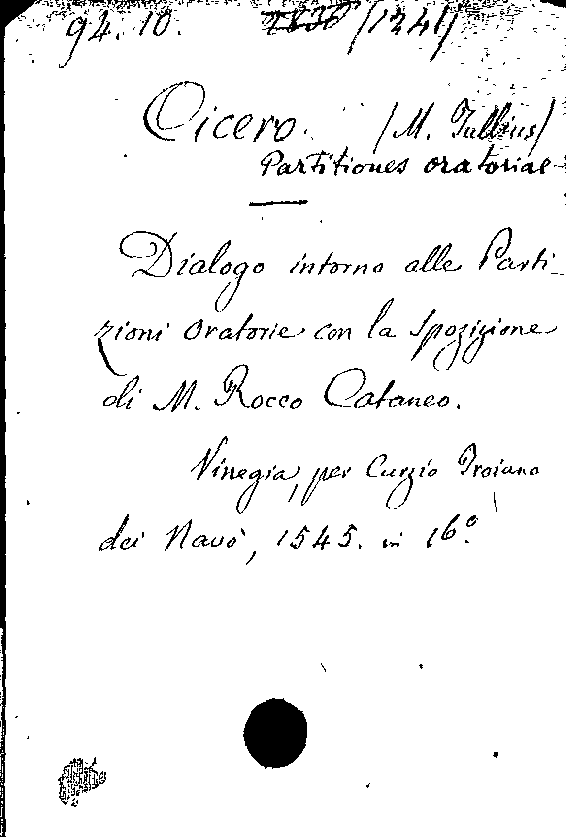 94. 10. /1241/
Cicero. /M. Tullius/
Partitiones oratoriae
Dialogo intorno alle Parti-
zioni Oratorie con la Spozizione
di M. Rocco Cataneo.
Vinegia, per Curzio Troiano
dei Navò, 1545. in 16°.